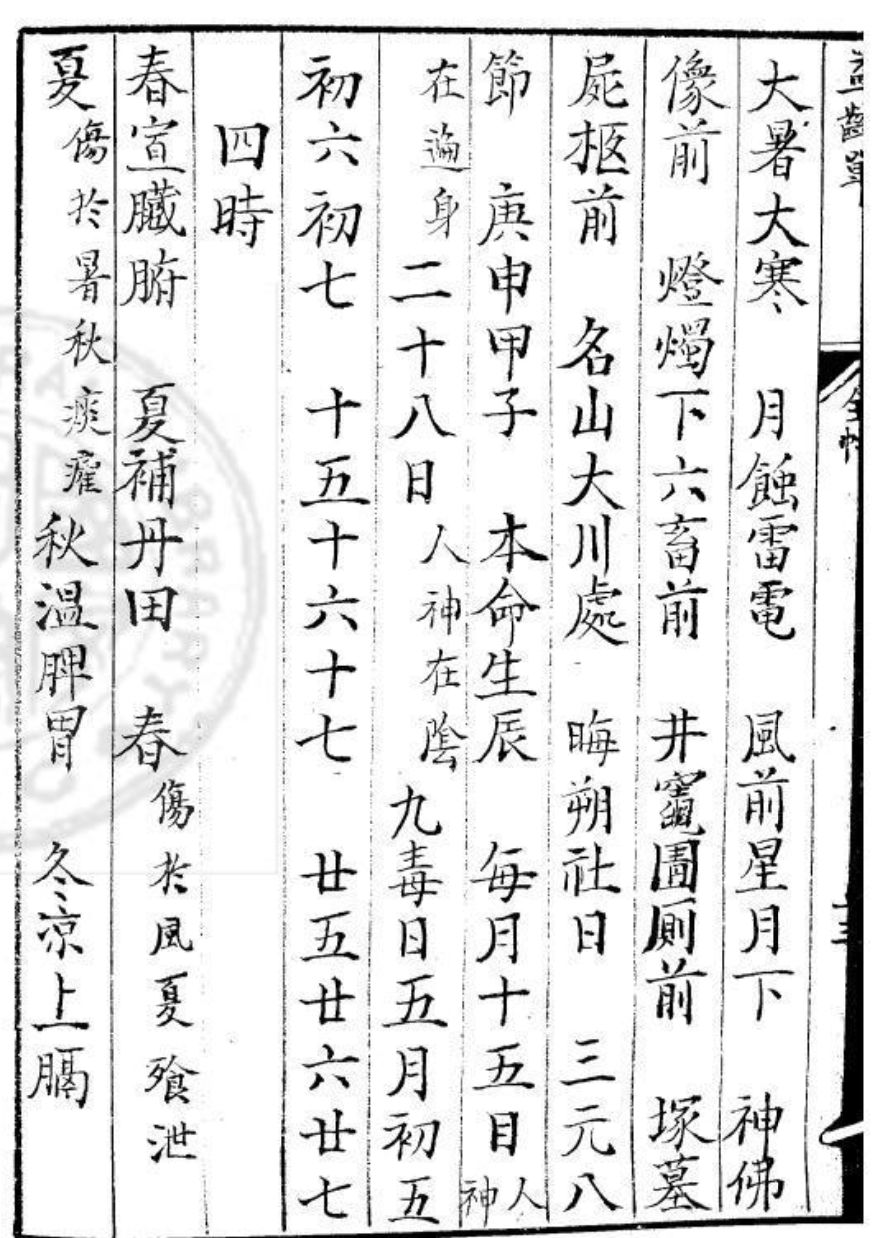 益齡單
大暑大寒 月蝕雷電 風前星月下 神佛
像前 燈燭下六畜前 井竈圊厠前 塚墓
屍柩前 名山大川處 晦朔社日 三元八
節 庚申甲子 本命生辰 每月十五日人神
在遍身二十八日人神在陰九毒日五月初五
初六初七 十五十六十七 廿五廿六廿七
四時
春宣臟腑 夏補丹田 春傷於風夏飱泄
夏傷於暑秋痎瘧秋溫脾胃 冬凉上膈